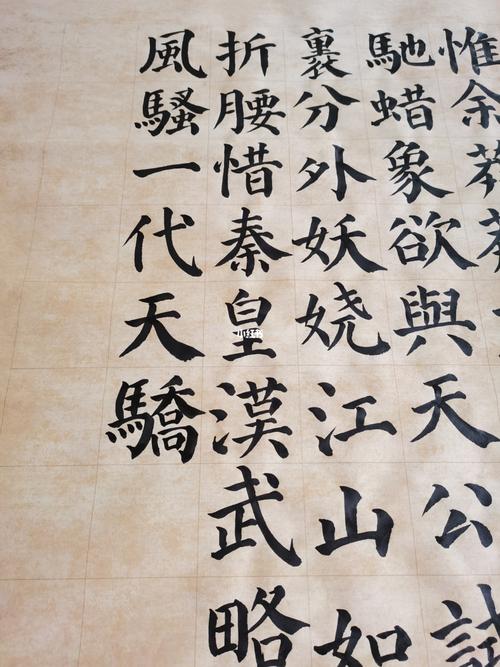 惟余莽莽
馳蜡象欲與天公試
裏分外妖娆江山如
折腰惜秦皇漢武略
風騷一代天驕
小红书